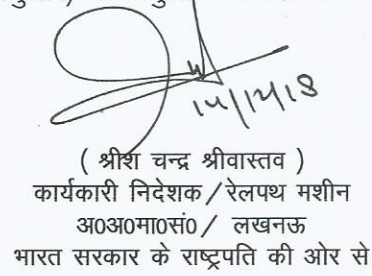 14/12/18
( श्रीश चन्द्र श्रीवास्तव )
कार्यकारी निदेशक / रेलपथ मशीन
अ0अ0मा0सं0 / लखनऊ
भारत सरकार के राष्ट्रपति की ओर से